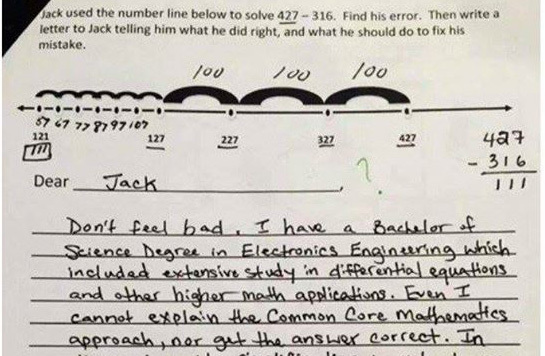 Jack used the number line below to solve 427 – 316. Find his error. Then write a
letter to Jack telling him what he did right, and what he should do to fix his
mistake.
100 100 100
57 67 77 87 97 107
121 127 227 327 427
111
427
- 316
111
Dear Jack, ?
Don't feel bad. I have a Bachelor of
Science Degree in Electronics Engineering which
included extensive study in differential equations
and other higher math applications. Even I
cannot explain the Common Core Mathematics
approach, nor get the answer correct. In